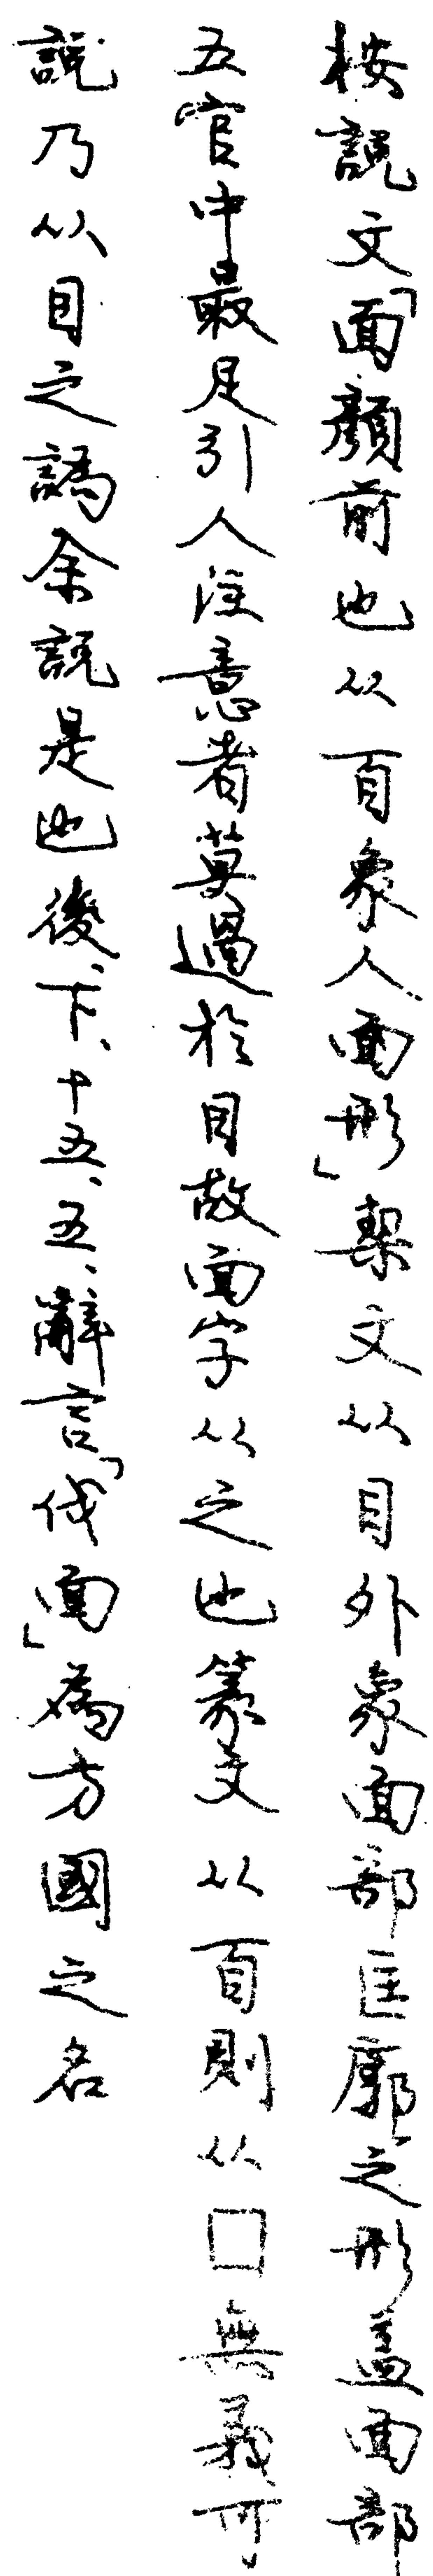 按説文「面顏前也从𦣻象人面形」栔文从目外象面部匡廓之形蓋面部
五官中最足引人注意者莫過於目故面字从之也篆文从𦣻則从囗無義可
説乃从目之譌余説是也後、下、十五、五、辭言「伐面」為方國之名